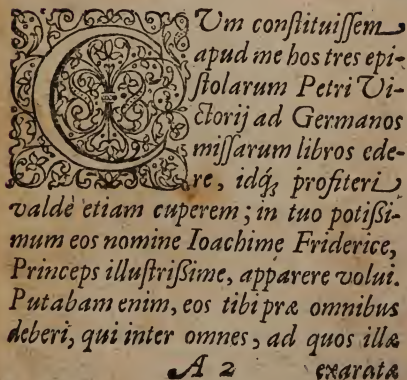 CVm conſtituiſſem
apud me hos tres epi-
ſtolarum Petri Vi-
ctorij ad Germanos
miſſarum libros ede-
re, idq́; profiteri
valdè etiam cuperem; in tuo potißi-
mum eos nomine Ioachime Friderice,
Princeps illuſtrißime, apparere volui.
Putabam enim, eos tibi præ omnibus
deberi, qui inter omnes, ad quos illæ
A 2 exaratæ